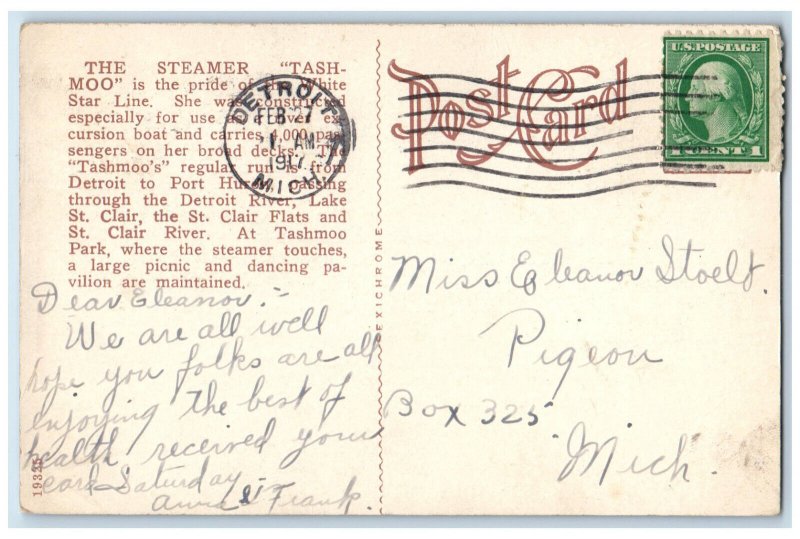 THE STEAMER "TASH-
MOO" is the pride of the White
Star Line. She was constructed
especially for use as a river ex-
cursion boat and carries 4,000 pas-
sengers on her broad decks. The
"Tashmoo's" regular run is from
Detroit to Port Huron, passing
through the Detroit River, Lake
St. Clair, the St. Clair Flats and
St. Clair River. At Tashmoo
Park, where the steamer touches,
a large picnic and dancing pa-
vilion are maintained.
Dear Eleanor:-
We are all well
hope you folks are all
enjoying the best of
health received your
card Saturday
Anna & Frank.
19325
DETROIT
FEB 27
1 AM
1917
MICH.
EXICHROME
Post Card
U.S. POSTAGE
1 CENT 1
Miss Eleanor Stoelt
Pigeon
Box 325
Mich.